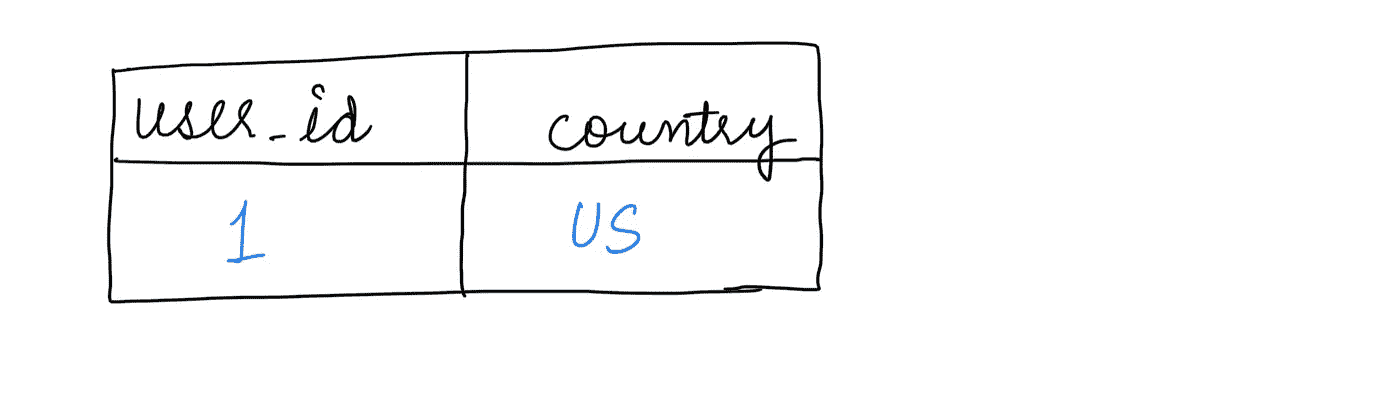 user_id country
1 US